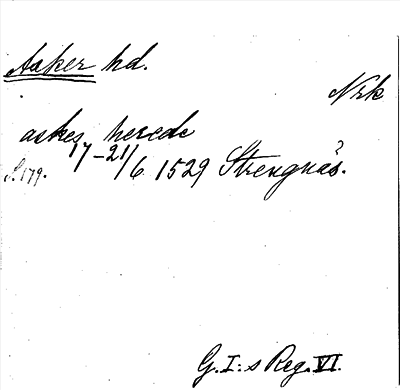 Asker hd.
Nrk
askers herede
17-21/6 1529 Strengnäs.
S. 179.
G. I:s Reg. VI.